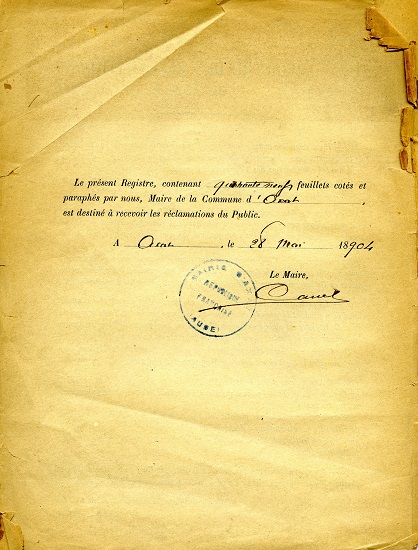 Le présent Registre, contenant quarante neuf feuillets cotés et
paraphés par nous, Maire de la Commune d'Axat,
est destiné à recevoir les réclamations du Public.
A Axat, le 28 Mai 18904
Le Maire,
MAIRIE D'AXAT
RÉPUBLIQUE
FRANÇAISE
AUDE